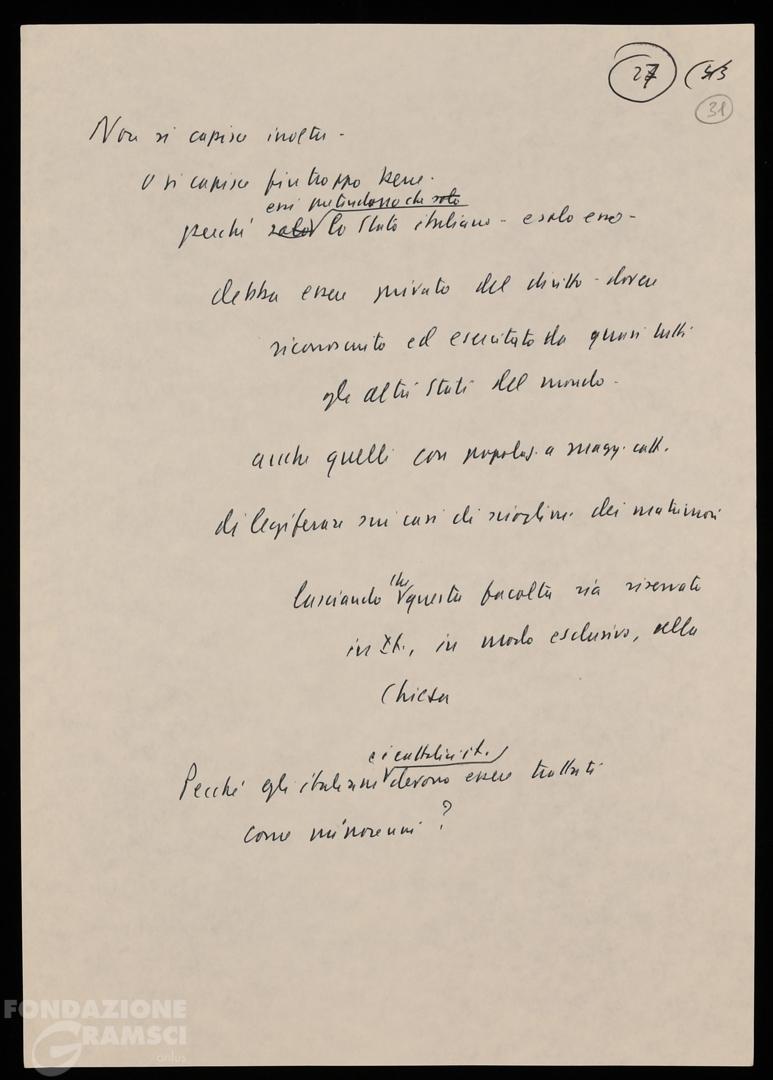 27 33
31
Non si capisce inoltre -
O si capisce purtroppo bene -
essi pretendono che solo
perché solo lo Stato italiano - e solo esso -
debba essere privato del diritto - dovere
riconosciuto ed esercitato da quasi tutti
gli altri Stati del mondo -
anche quelli con popolaz. a magg. catt.
di legiferare sui casi di scioglim. dei matrimoni
che
lasciando questa facoltà sia riservata
in It., in modo esclusivo, alla
Chiesa
e i cattolici it.
Perché gli italiani devono essere trattati
come minorenni ?
FONDAZIONE
GRAMSCI
onlus